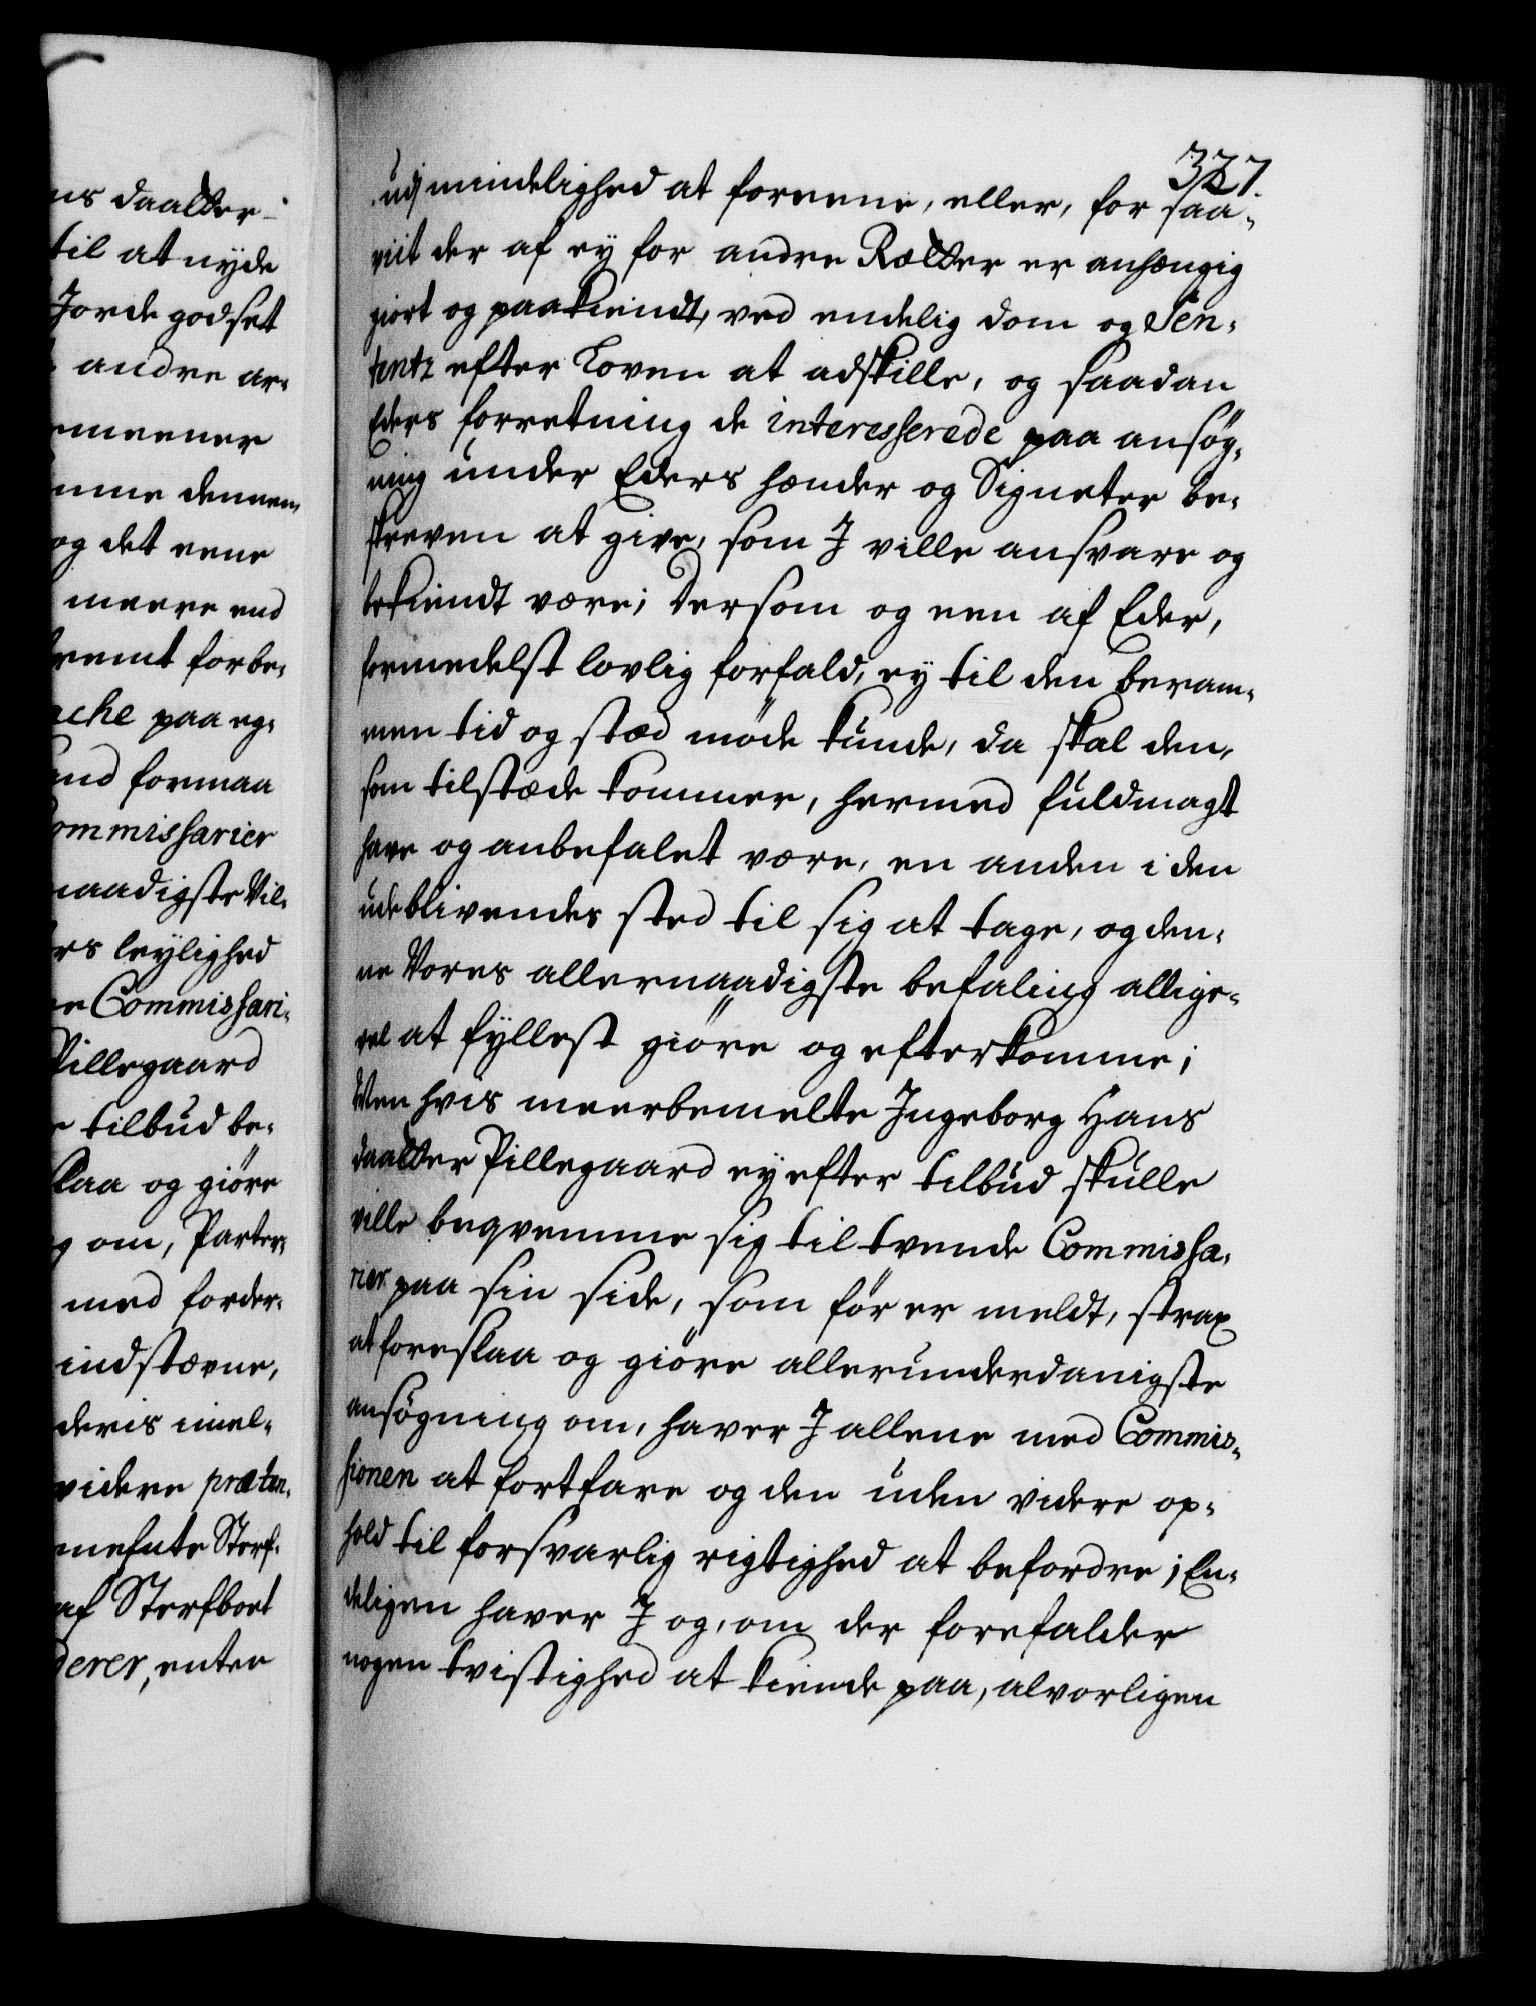 ns daatter
til at nyde
Jorde godset
andre ar-
meener
mme dennem
og det eene
meere end
bemt forbe-
ache paa eg-
and formaa
ommissarier
naadigste Vil-
rs leylighed
e Commissari-
Pillegaard
e tilbud be-
slaa og giöre
g om, Parter-
med forder-
indstævne,
deris imel-
videre præten-
melte Sterf-
af Sterfboet
derer, enten
327.
udj mindelighed at foreene, eller, for saa-
viit der af ey for andre Rætter er anhængig
giort og paakiendt, ved endelig dom og Sen-
tentz efter Loven at adskille, og saadan
Eders forretning de interesserede paa ansög-
ning under Eders hænder og Signeter be-
skreven at give, som J ville ansvare og
bekiendt være; Dersom og een af Eder,
formedelst lovlig forfald, ey til den beram-
men tid og stæd möde kunde, da skal den,
som tilstæde kommer, hermed fuldmagt
have og anbefalet være, en anden i den
udeblivendes sted til sig at tage, og den-
ne Vores allernaadigste befaling allige-
vel at fyllest giöre og efterkomme;
Men hvis meerbemelte Ingeborg Hans
daatter Pillegaard ey efter tilbud skulle
ville beqvemme sig til tvende Commissa-
rier paa sin side, som för er meldt, strax
at foreslaa og giöre allerunderdanigste
ansögning om, haver J allene med Commis-
sionen at fortfare og den uden videre op-
hold til forsvarlig rigtighed at befordre; En-
deligen haver J og, om der forefalder
nogen tvistighed at kiende paa, alvorligen